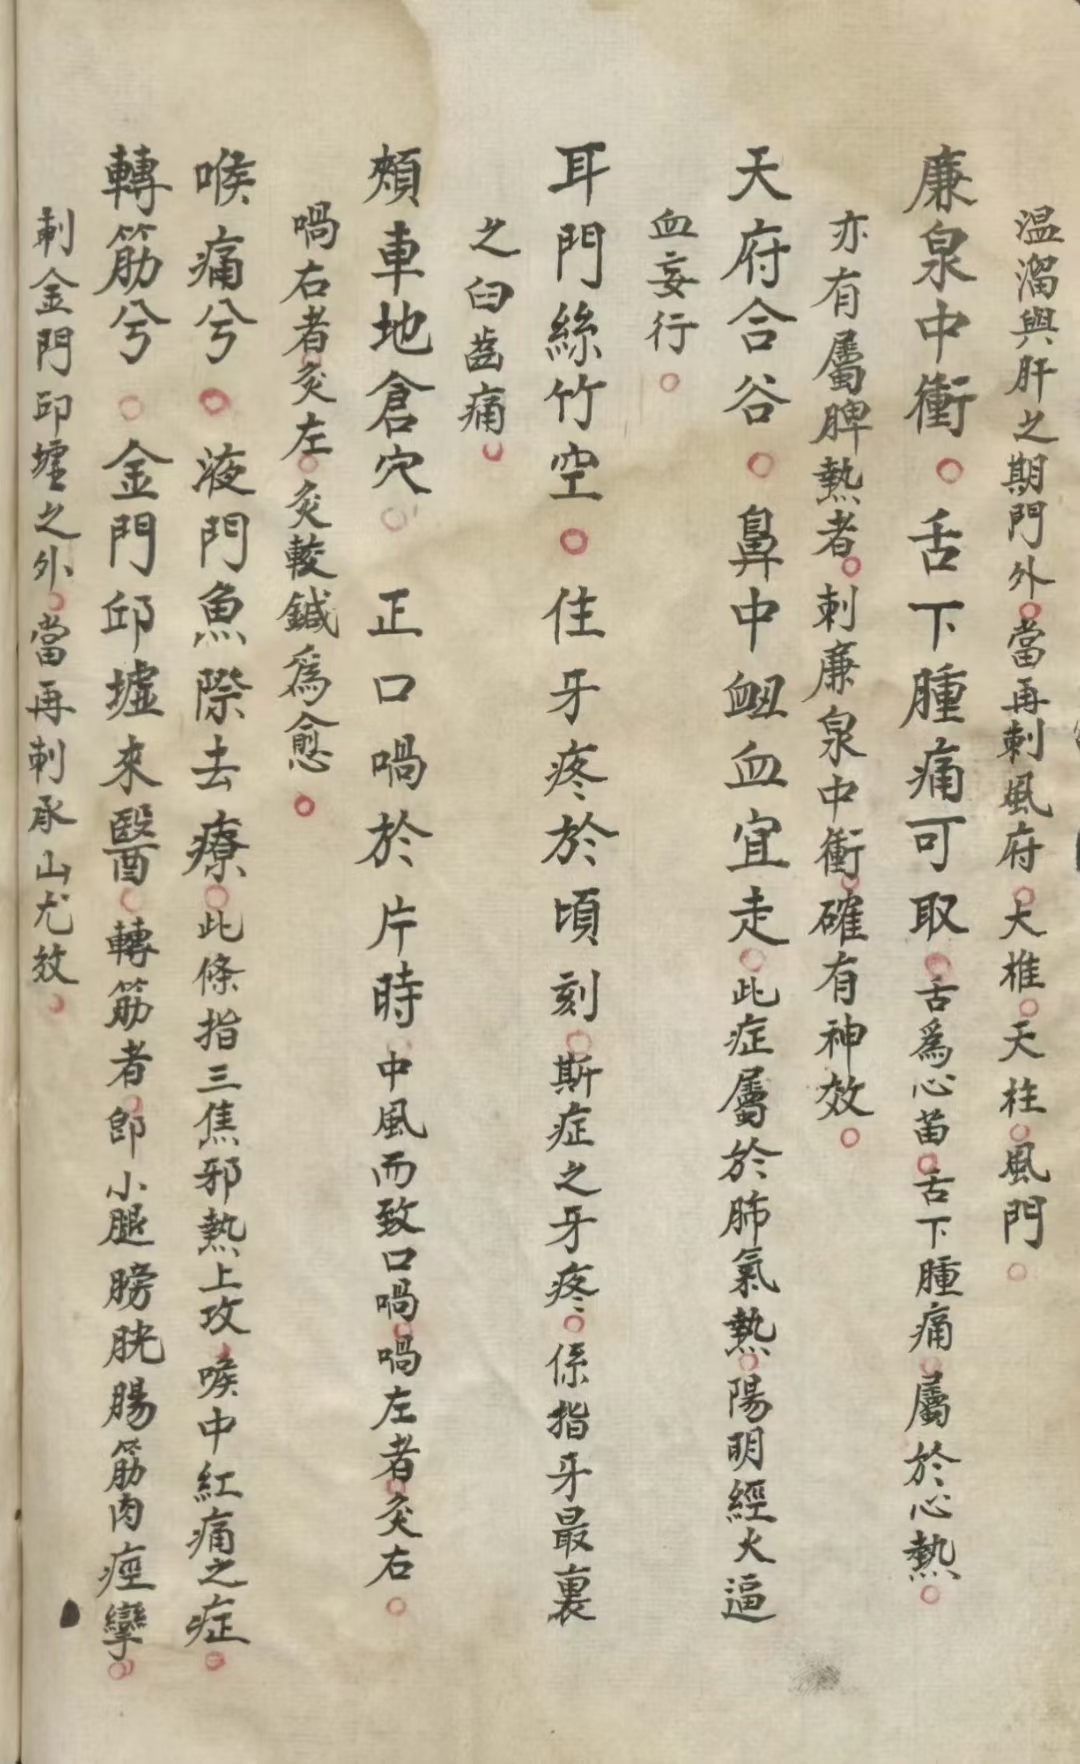 温溜與肝之期門外。當再刺風府。大椎。天柱。風門。
廉泉中衝。舌下腫痛可取。舌爲心苗。舌下腫痛。屬於心熱。
亦有屬脾熱者。刺廉泉中衝。確有神效。
天府合谷。鼻中衄血宜走。此症屬於肺氣熱。陽明經火逼
血妄行。
耳門絲竹空。住牙疼於頃刻。斯症之牙疼。係指牙最裏
之臼齒痛。
頰車地倉穴。正口喎於片時。中風而致口喎。喎左者。灸右。
喎右者。灸左。灸較鍼爲愈。
喉痛兮。液門魚際去療。此條指三焦邪熱上攻。喉中紅痛之症。
轉筋兮。金門邱墟來醫。轉筋者。卽小腿膀胱腸筋肉痙攣。
刺金門邱墟之外。當再刺承山尤效。